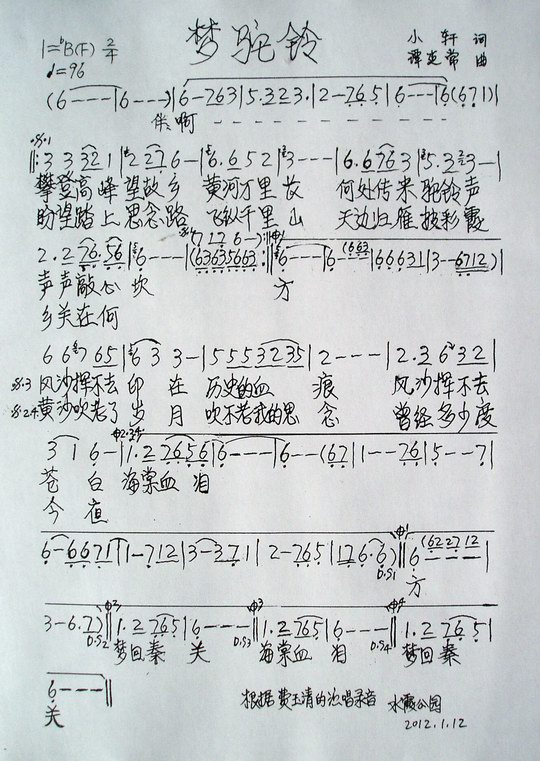 梦驼铃
1=♭B(F) 2/4
♩=96
小轩 词
谭健常 曲
(6---|6---)|6-763|5.323.|2-765|6---|6(671)|
伴.啊 - - - - - - - -
‖:3 3 321|2 2276-|6.652|3---|6.6763|5.323-|
攀登高峰 望故乡 黄河万里长 何处传来 驼铃声
盼望踏上 思念路 飞纵千里山 天边归雁 披彩霞
7 1 7 6-):‖
2.276.56|6---|(63635663:‖6---|6-(663|666631|3--6712)|
声声敲心坎 方
乡关在何
6 6 65|6 3 3-|5553235|2---|2.3 6 32|
𝄋.3 风沙挥不去 印在 历史的血 痕 风沙挥不去
𝄋.2.4 黄沙吹老了 岁月 吹不老我的思 念 曾经多少度
3 1 6-|1.27656|6---|6--(67|1--76|5--7|
苍白 海棠血 泪
今夜
6-6671|1-712|3-371|2-765|176.6)‖6---|
(622712
D.S1
方
3-6.7)‖1.2765|6---‖1.2765|6---‖1.2765|
D.S2 梦回秦 关 D.S3 海棠血 泪 D.S4 梦回秦
6---‖
关
根据费玉清的演唱录音 水霞公园
2012.1.12